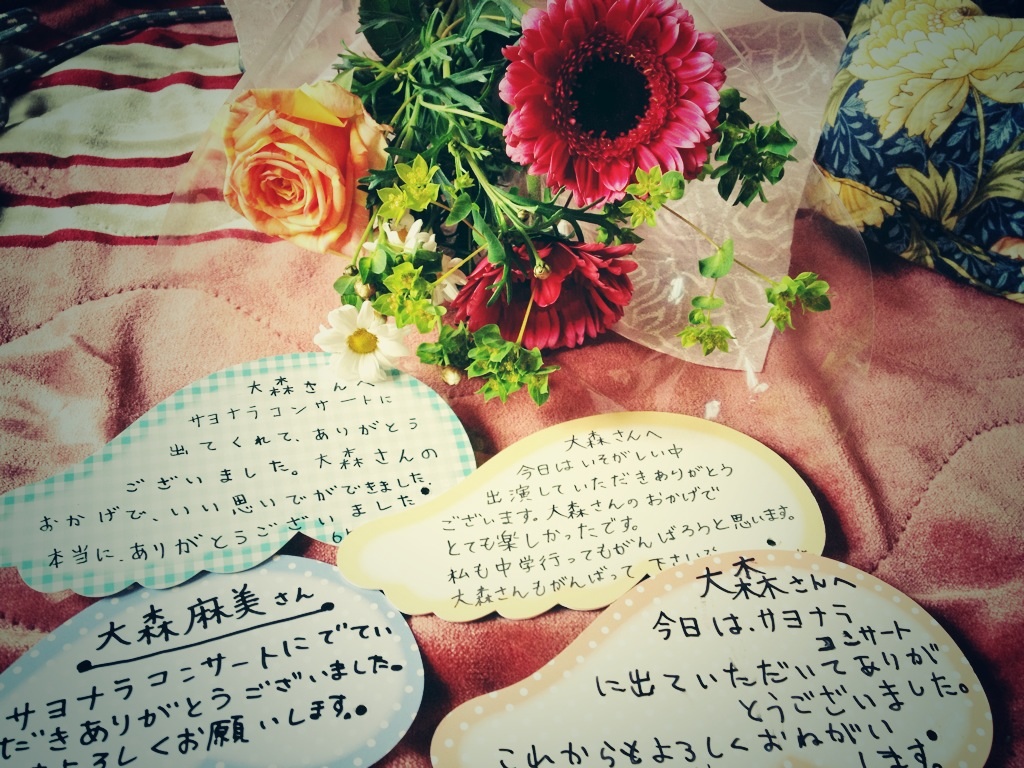 大森さんへ
サヨナラコンサートに
出てくれて、ありがとう
ございました。大森さんの
おかげで、いい思いでができました。
本当に、ありがとうございました
大森さんへ
今日はいそがしい中
出演していただきありがとう
ございます。大森さんのおかげで
とても楽しかったです。
私も中学行ってもがんばろうと思います。
大森さんもがんばって下さいね
大森麻美さん
サヨナラコンサートにでてい
ただきありがとうございました。
よろしくお願いします。
大森さんへ
今日は、サヨナラ
コンサート
に出ていただいてありが
とうございました。
これからもよろしくおねがい
します。